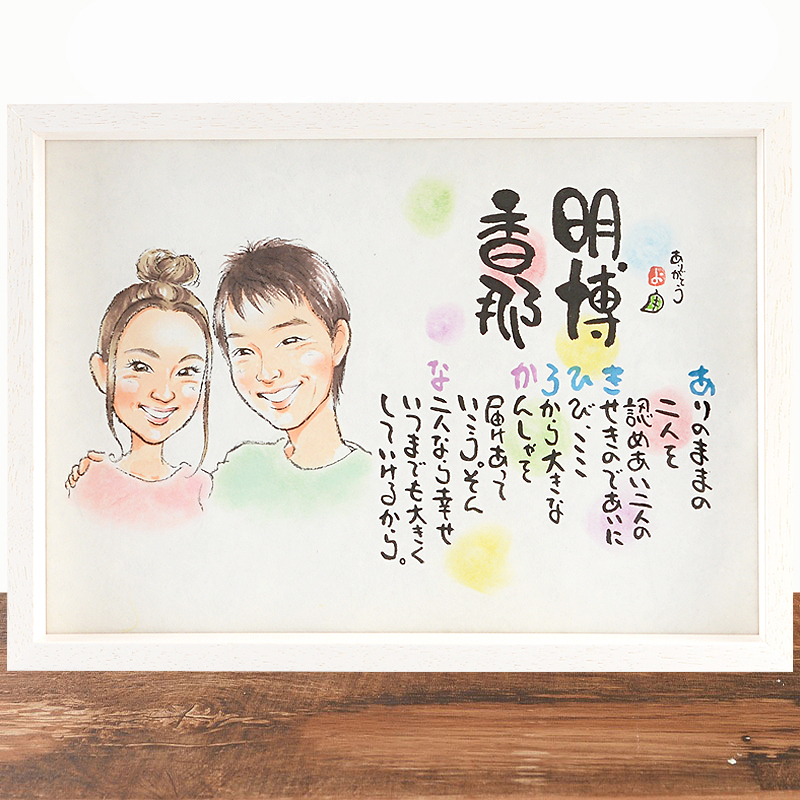 明博
香那
ありがとう
ありのままの
二人を
認めあい二人の
きせきのであいに
ひび、ここ
ろから大きな
かんしゃを
届けあって
いこう。そん
な二人なら幸せ
いつまでも大きく
していけるから。